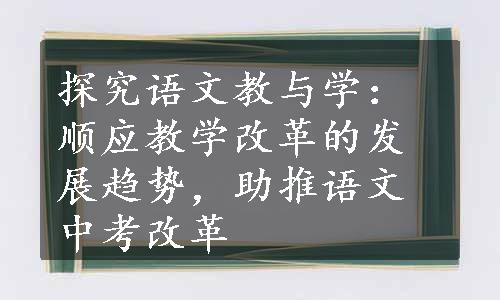 探究语文教与学：
顺应教学改革的发
展趋势，助推语文
中考改革